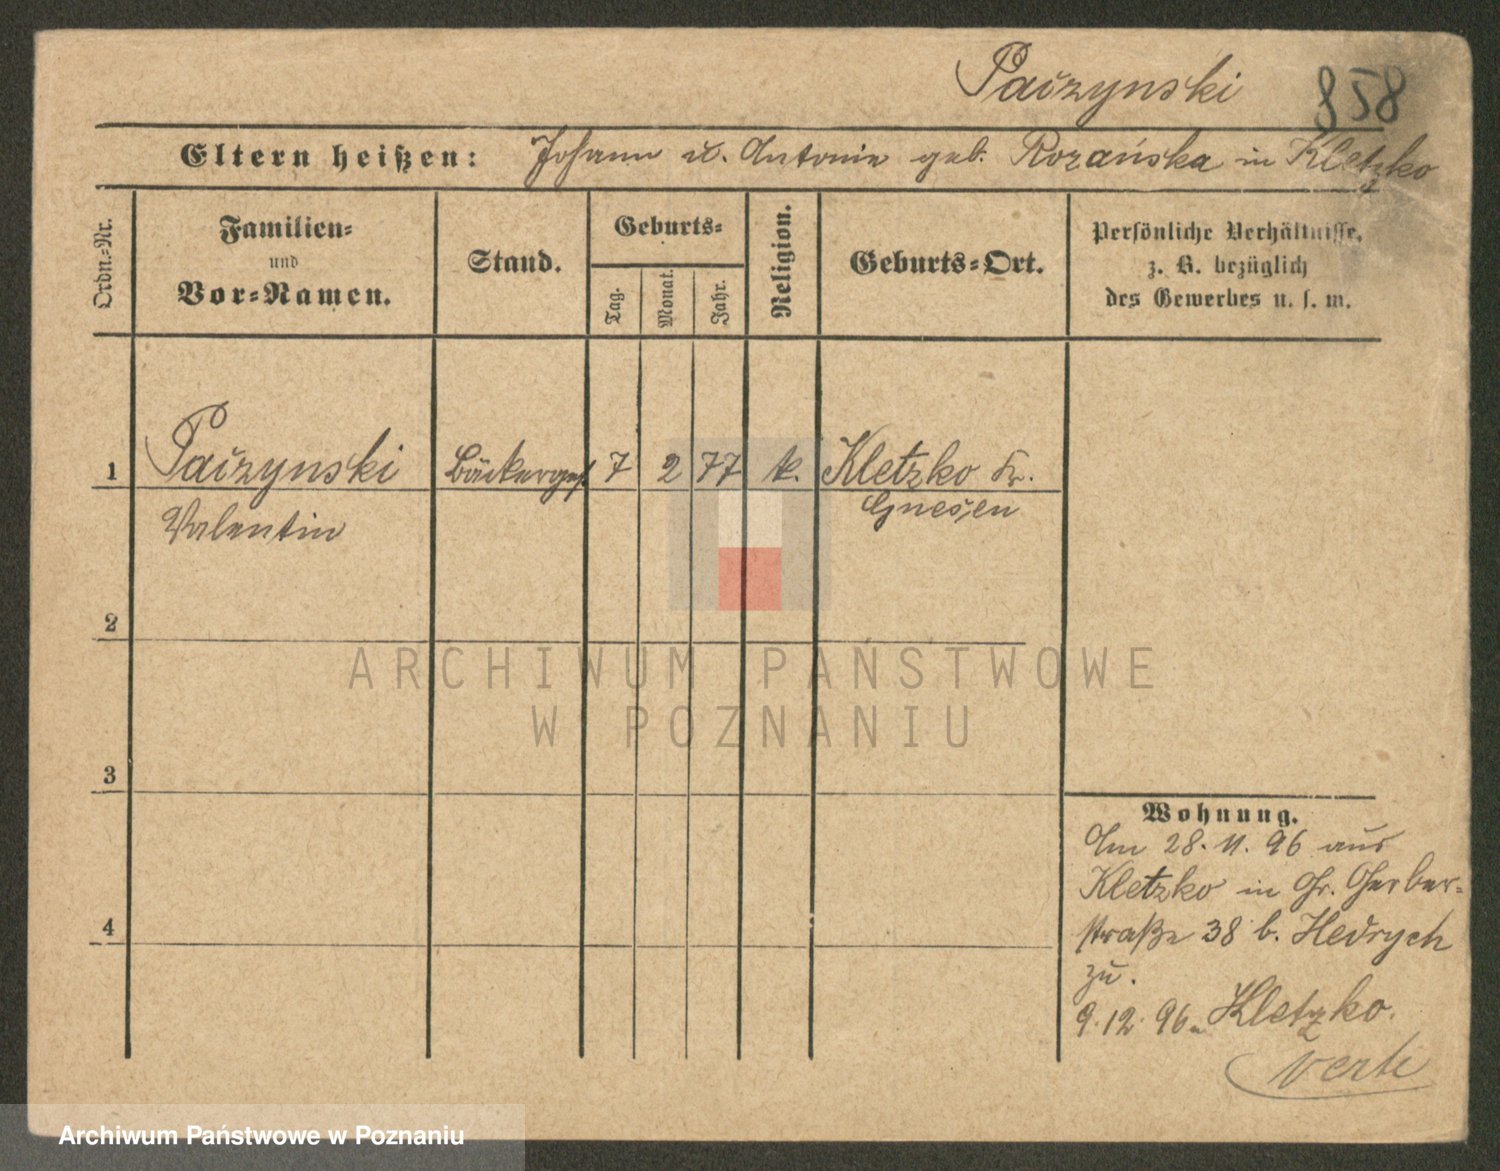 Paczynski 858
Eltern heißen: Johann u. Antonie geb. Rozańska in Kletzko
Ordn.-Nr.
Familien-
und
Vor-Namen.
Stand.
Geburts-
Tag.
Monat.
Jahr.
Religion.
Geburts-Ort.
Persönliche Verhältnisse,
z. B. bezüglich
des Gewerbes u. s. m.
1 Paczynski Bäckerges. 7 2 77 k. Kletzko Kr.
Valentin Gnesen
2
ARCHIWUM PAŃSTWOWE
W POZNANIU
3
Wohnung.
Am 28. 11. 96 aus
Kletzko in Gr. Gerber-
straße 38 b. Hedrych
zu.
9. 12. 96 n. Kletzko.
verte
4
Archiwum Państwowe w Poznaniu